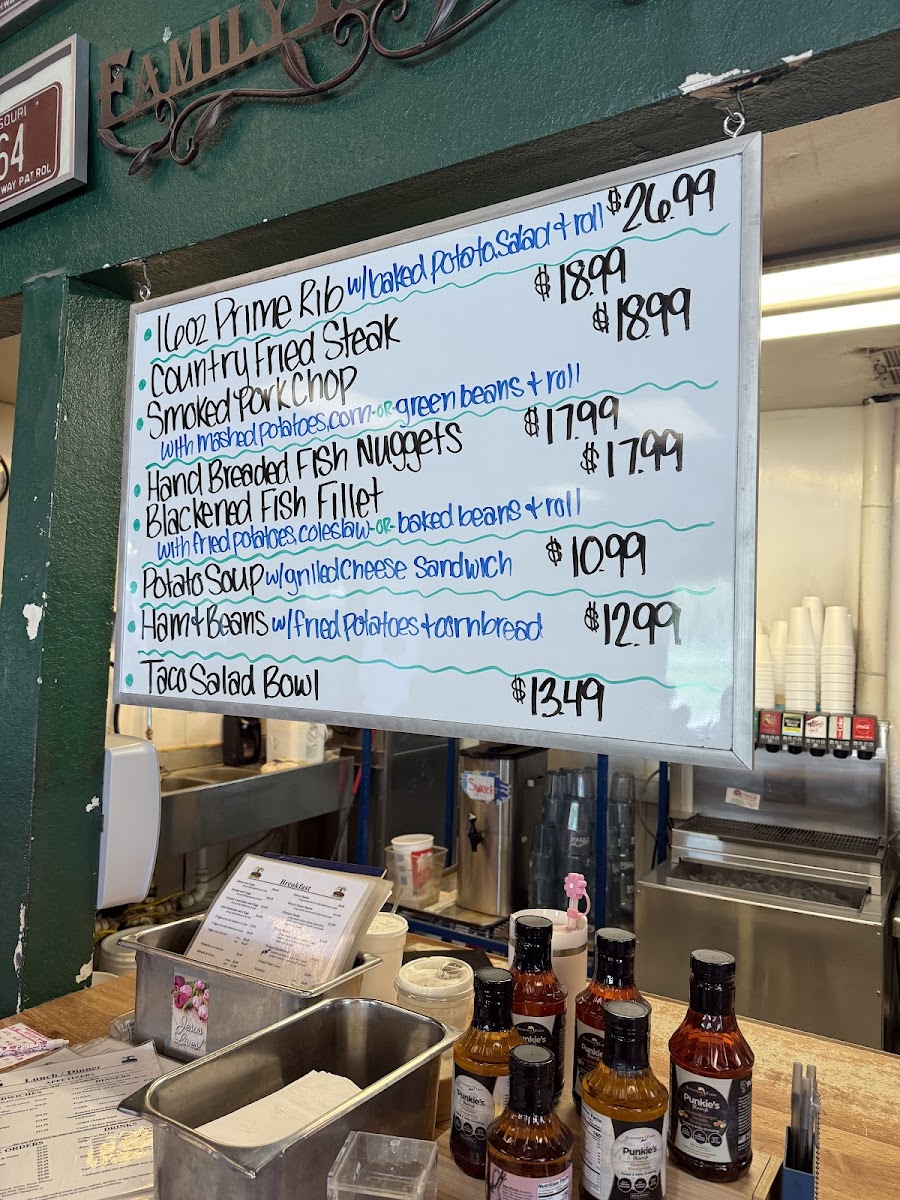 FAMILY
SOURI
64
WAY PATROL
• 16oz Prime Rib w/baked potato, salad + roll $26.99
• Country Fried Steak $18.99
• Smoked Pork Chop $18.99
with mashed potatoes, corn -OR- green beans + roll
• Hand Breaded Fish Nuggets $17.99
• Blackened Fish Fillet $17.99
with fried potatoes, coleslaw -OR- baked beans + roll
• Potato Soup w/grilled cheese Sandwich $10.99
• Ham + Beans w/fried potatoes + cornbread $12.99
• Taco Salad Bowl $13.49
Sweet
Breakfast
Jesus
Saves!
Lunch / Dinner
APPETIZERS
DINNERS
DRINKS
Punkie's
Punkie's
Punkie's
Punkie's
Nutrition Facts